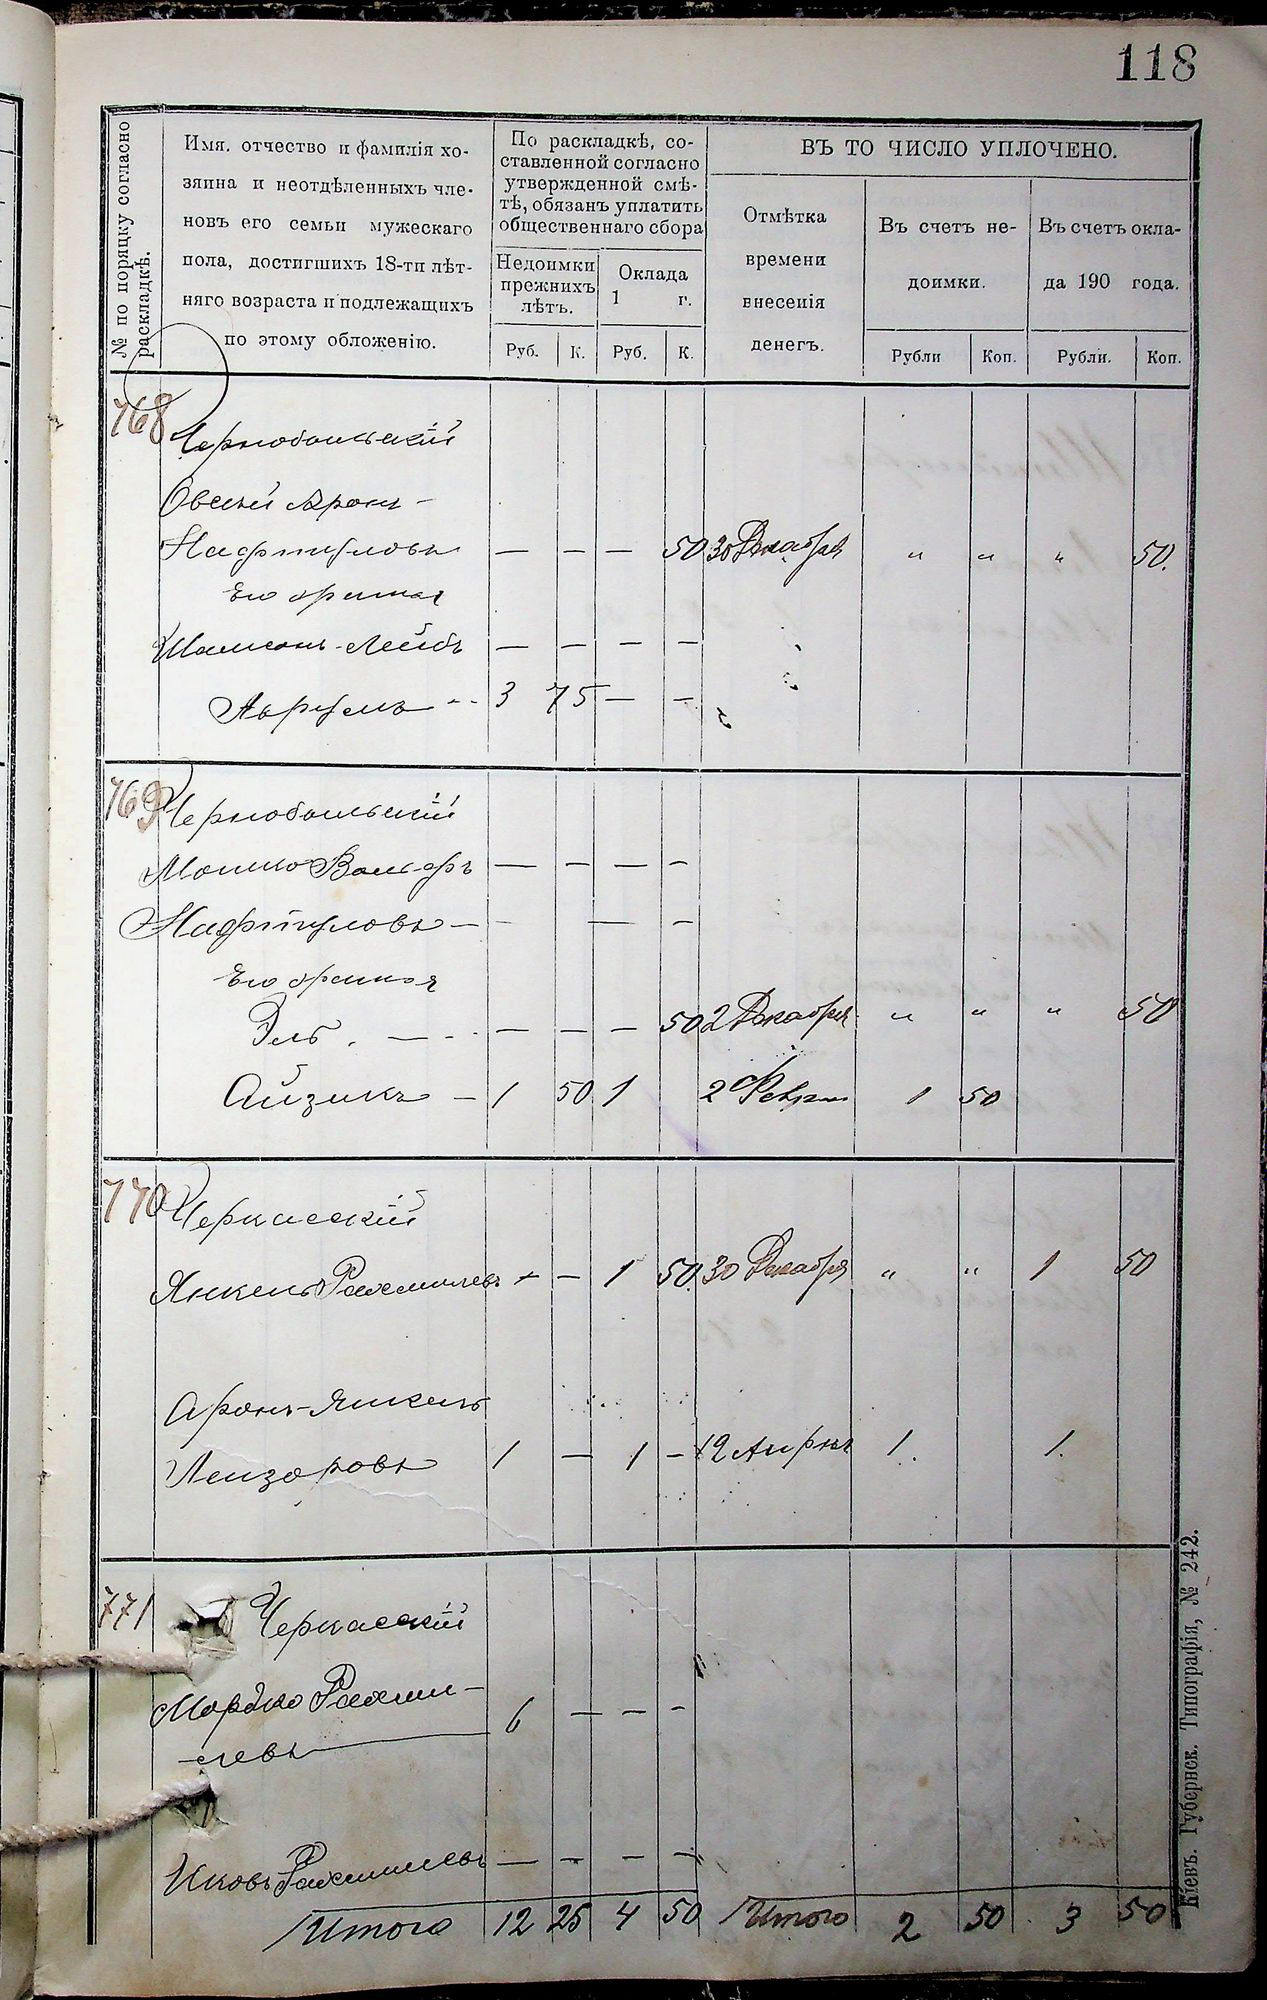 118
№ по порядку согласно раскладкѣ.
Имя. отчество и фамилія хо-
зяина и неотдѣленныхъ чле-
новъ его семьи мужескаго
пола, достигшихъ 18-ти лѣт-
няго возраста и подлежащихъ
по этому обложенію.
По раскладкѣ, со-
ставленной согласно
утвержденной смѣ-
тѣ, обязанъ уплатить
общественнаго сбора
Недоимки
прежнихъ
лѣтъ.
Оклада
1 г.
Руб. К. Руб. К.
ВЪ ТО ЧИСЛО УПЛОЧЕНО.
Отмѣтка
времени
внесенія
денегъ.
Въ счетъ не-
доимки.
Въ счетъ окла-
да 190 года.
Рубли Коп. Рубли. Коп.
768 Чернобыльскій
Овсей Аронъ-
Нафтуловъ — — — 50 30 Декабря " " " 50.
Его братья
Шлиомъ-Лейбъ — — — —
Аврумъ 3 75 — —
769 Чернобыльскій
Мошко Вольфъ — — — —
Нафтуловъ — — — —
Его братья
Эль — — — 50 2 Декабря " " " 50
Айзикъ — 1 50 1 2 Февраля 1 50
770 Черкасскій
Янкель Рахмилевъ — — 1 50 30 Декабря " " 1 50
Аронъ-Янкель
Лейзоровъ 1 — 1 — 12 Апрѣля 1. 1.
771 Черкасскій
Мордко Рахми-
левъ 6 — — —
Яковъ Рахмилевъ — — — —
Итого 12 25 4 50 Итого 2 50 3 50
Кіевъ. Губернск. Типографія, № 242.